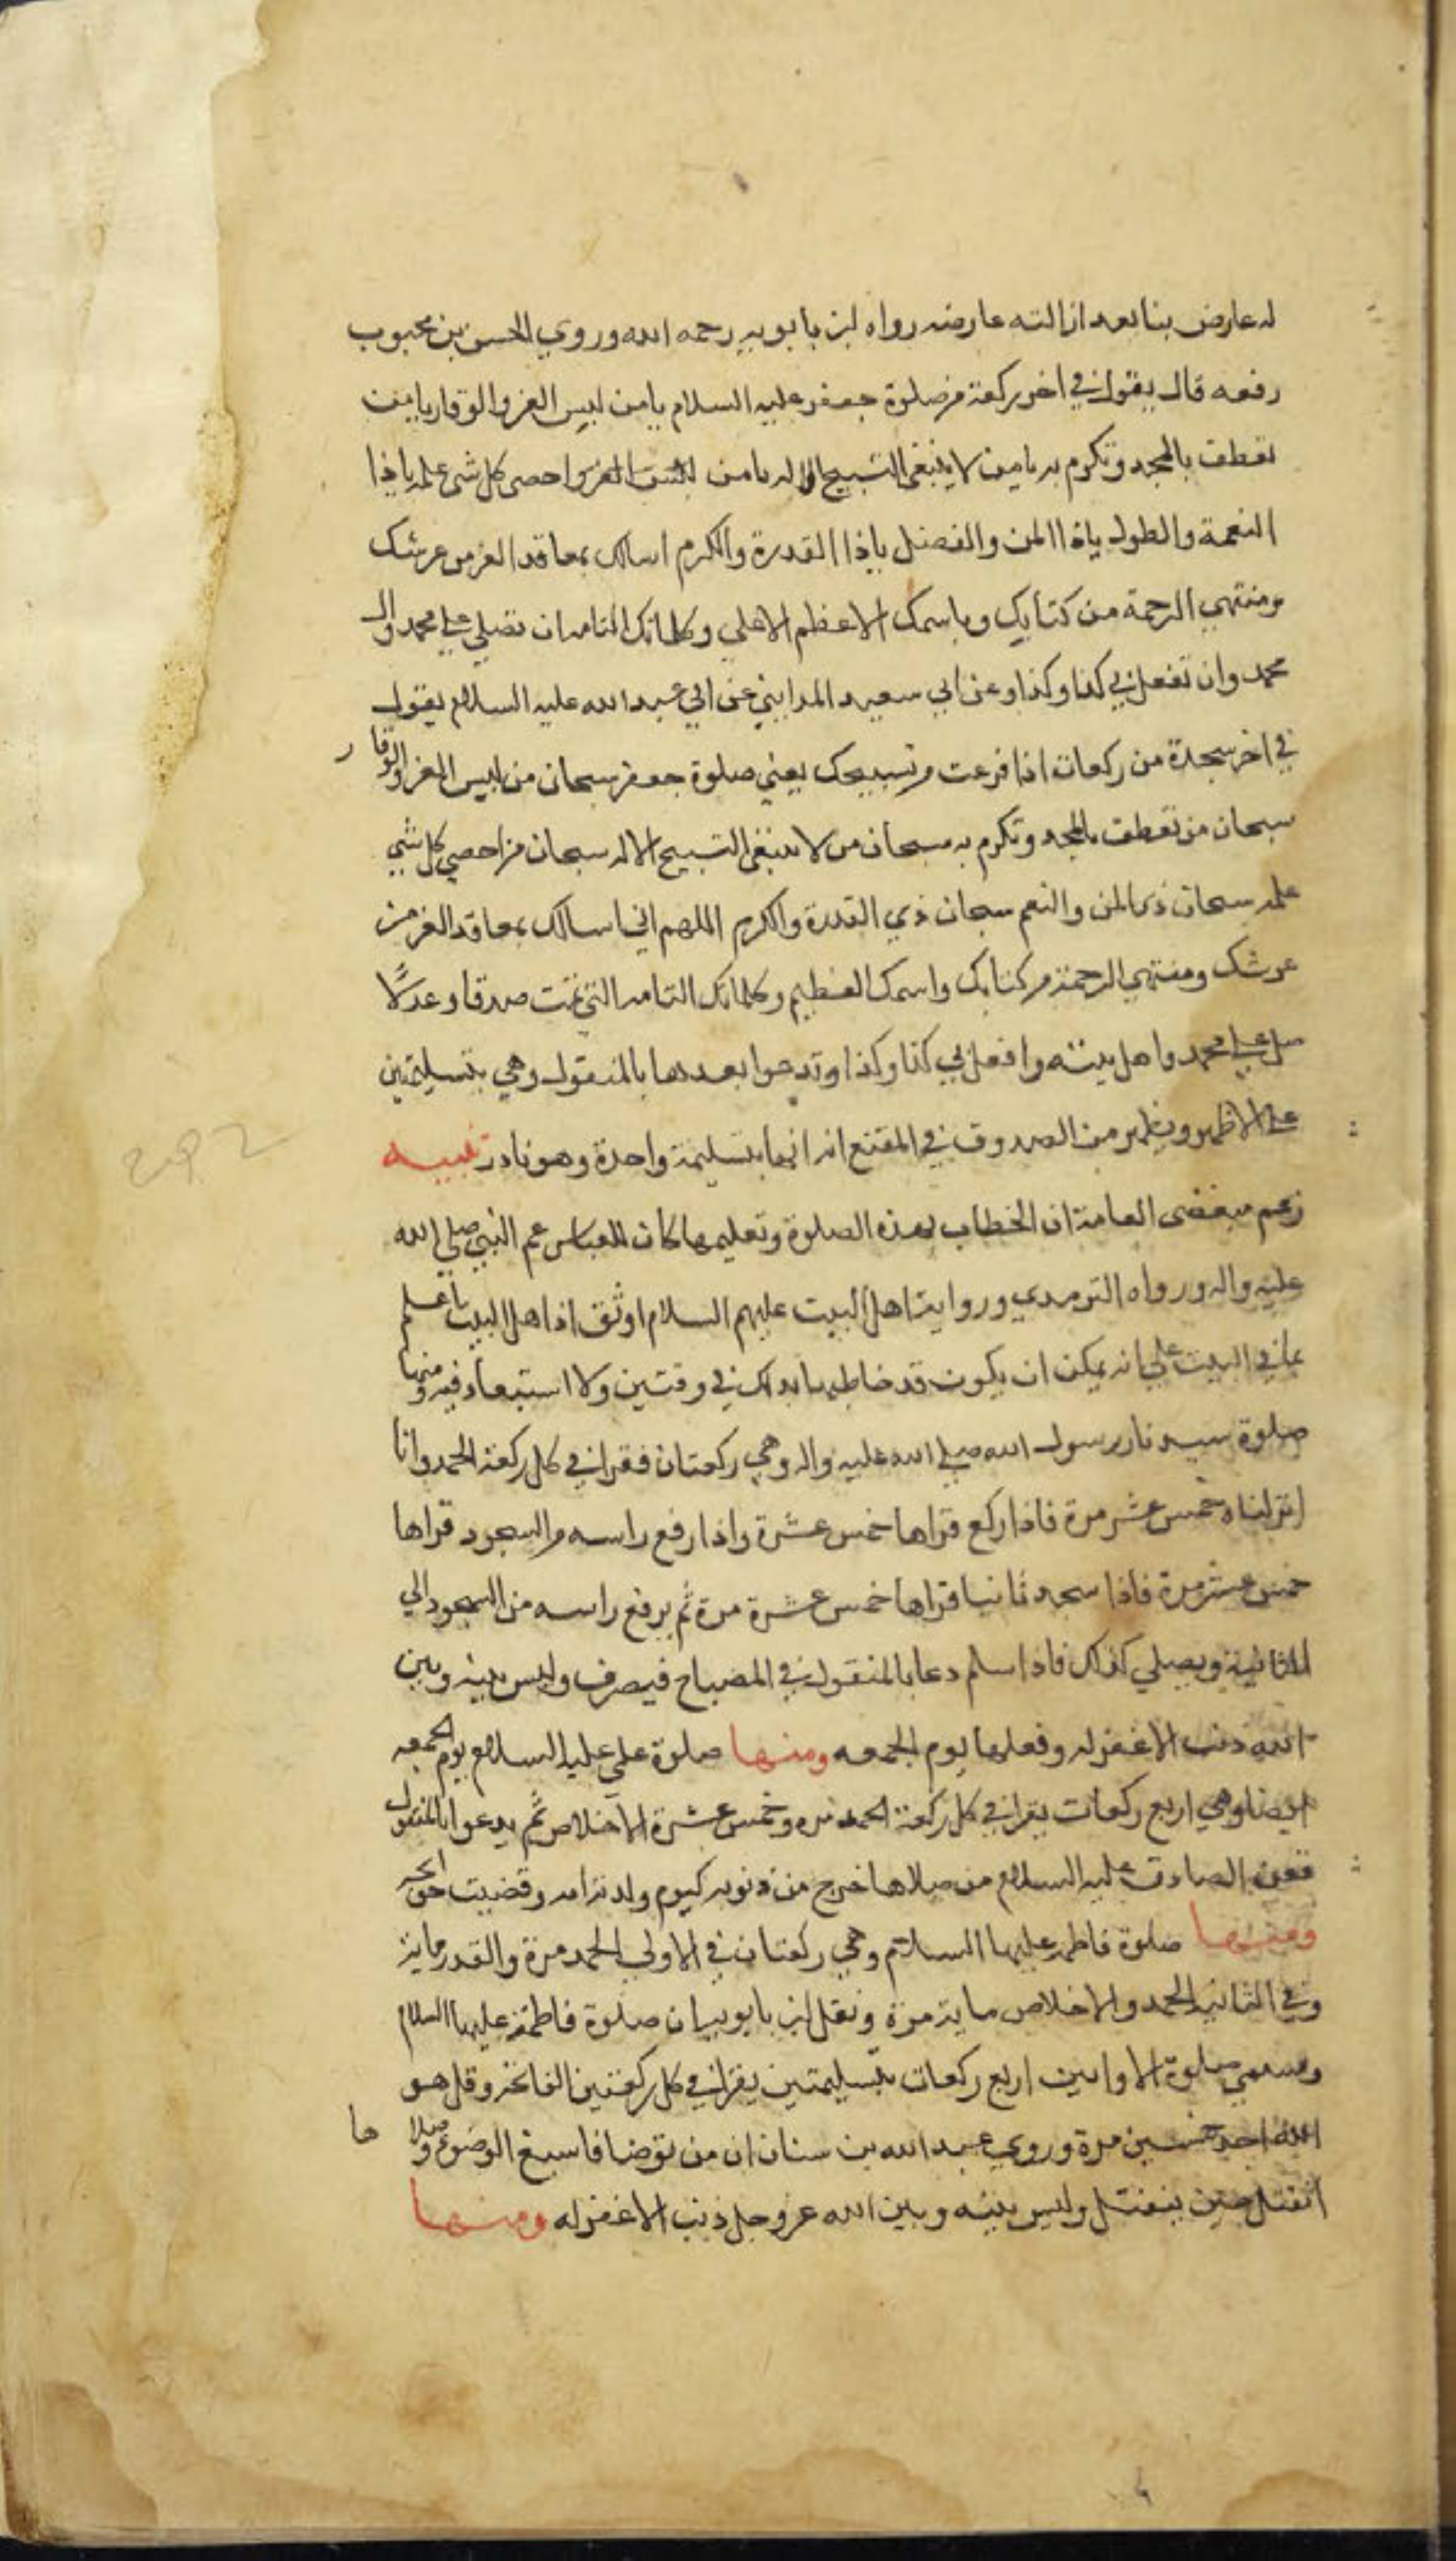 له عارض بنا بعد ازالته عارضه رواه ابن بابويه رحمه الله وروي الحسن بن محبوب
رفعه قال يقول في اخر ركعة من صلوة جعفر عليه السلام يا من لبس العز والوقار يا من
تعطف بالمجد وتكرم به يا من لا ينبغي التسبيح الا له يا من احصى كل شي علمه يا ذا
النعمة والطول ياذا المن والفضل ياذا القدرة والكرم اسالك بمعاقد العز من عرشك
ومنتهي الرحمة من كتابك وباسمك الاعظم الاعلي وكلماتك التامه ان تصلي علي محمد وال
محمد وان تفعل بي كذا وكذا وعن ابي سعيد المدايني عن ابي عبد الله عليه السلام يقول
في اخر سجدة من ركعات اذا فرغت من تسبيحك يعني صلوة جعفر سبحان من لبس العز والوقار
سبحان من تعطف بالمجد وتكرم به سبحان من لا ينبغي التسبيح الا له سبحان من احصي كل شي
علمه سبحان ذي المن والنعم سبحان ذي القدرة والكرم اللهم اني اسالك بمعاقد العز من
عرشك ومنتهي الرحمة من كتابك واسمك العظيم وكلماتك التامه التي تمت صدقا وعدلًا
صل علي محمد واهل بيته وافعل بي كذا وكذا وتدعوا بعدها بالمنقول وهي بتسليمتين
علي الاظهر ويظهر من الصدوق في المقنع انه انها بتسليمة واحدة وهو نادر تنبيه
زعم بعض العامة ان الخطاب بهذه الصلوة وتعليمها كان للعباس عم النبي صلي الله
عليه واله ورواه الترمدي ورواية اهل البيت عليهم السلام اوثق اذ اهل البيت اعلم
بما في البيت علي انه يمكن ان يكون قد خاطبهما بذلك في وقتين ولا استبعاد فيه ومنها
صلوة سيدنا رسول الله صلي الله عليه واله وهي ركعتان فقرا في كل ركعة الحمد وانا
انزلناه خمس عشر مرة فاذا ركع قراها خمس عشرة واذا رفع راسه من السجود قراها
خمس عشر مرة فاذا سجد ثانيا قراها خمس عشرة مرة ثم يرفع راسه من السجود الي
الثانية ويصلي كذلك فاذا سلم دعا بالمنقول في المصباح فيصرف وليس بينه وبين
الله ذنب الا غفر له وفعلها يوم الجمعه ومنها صلوة علي عليه السلام يوم الجمعه
ايضا وهي اربع ركعات يقرا في كل ركعة الحمد مره وخمس عشرة الاخلاص ثم يدعوا بالمنقول
فعن الصادق عليه السلام من صلاها خرج من ذنوبه كيوم ولدته امه وقضيت حوايجه
ومنها صلوة فاطمه عليها السلام وهي ركعتان في الاولي الحمد مرة والقدر مايه
وفي الثانيه الحمد والاخلاص مايه مرة ونقل ابن بابويه ان صلوة فاطمة عليها السلام
وتسمي صلوة الاوابين اربع ركعات بتسليمتين يقرا في كل ركعتين الفاتحه وقل هو
الله احد خمسين مرة وروي عبد الله بن سنان ان من توضا فاسبغ الوضوء وصلاها
انفتل حين ينفتل وليس بينه وبين الله عز وجل ذنب الا غفر له ومنها